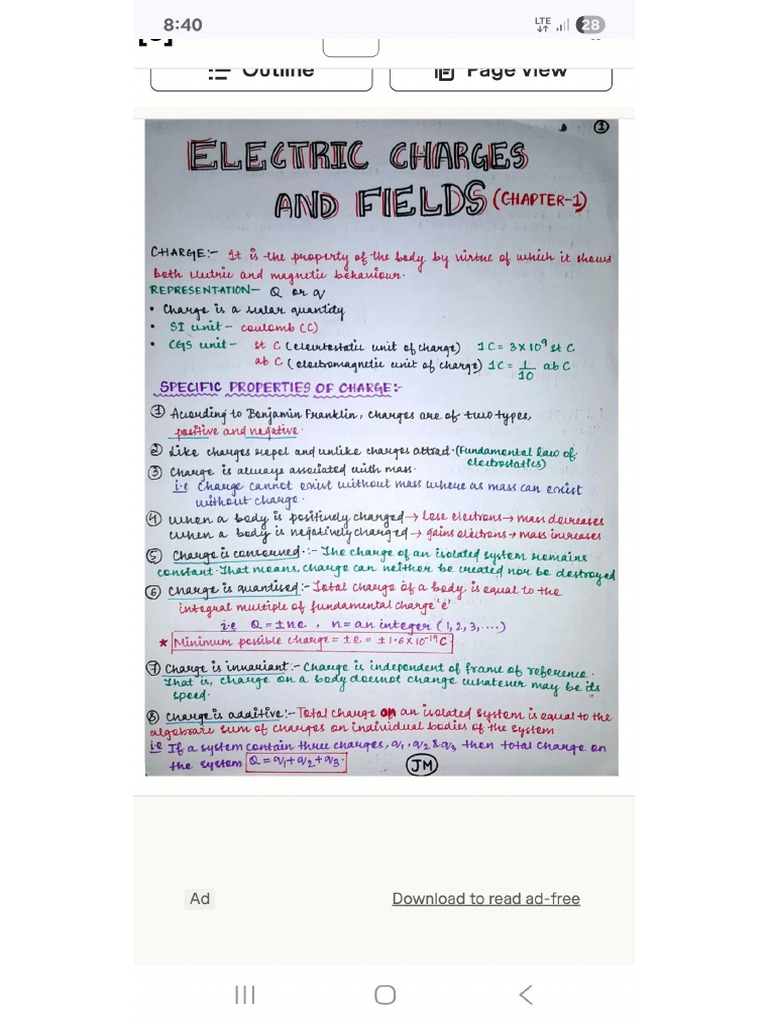 8:40
LTE
28
Outline
Page View
1
ELECTRIC CHARGES
AND FIELDS (CHAPTER-1)
CHARGE:- It is the property of the body by virtue of which it shows
both electric and magnetic behaviour.
REPRESENTATION- Q or q
• Charge is a scalar quantity
• SI unit - coulomb (C)
• CGS unit - st C (electrostatic unit of charge) 1C = 3×10⁹ st C
ab C (electromagnetic unit of charge) 1C = 1/10 ab C
SPECIFIC PROPERTIES OF CHARGE:-
① According to Benjamin Franklin, charges are of two types,
positive and negative.
② Like charges repel and unlike charges attract. (Fundamental law of
electrostatics)
③ Charge is always associated with mass.
i.e Charge cannot exist without mass where as mass can exist
without charge.
④ When a body is positively charged → Lose electrons → mass decreases
When a body is negatively charged → gains electrons → mass increases
⑤ Charge is conserved.:- The charge of an isolated system remains
constant. That means, charge can neither be created nor be destroyed
⑥ Charge is quantised:- Total charge of a body is equal to the
integral multiple of fundamental charge 'e'
i.e Q = ±ne , n = an integer (1, 2, 3, ....)
★ Minimum possible charge = ±e = ±1.6×10⁻¹⁹C
⑦ Charge is invariant:- Charge is independent of frame of reference.
That is, charge on a body doesnot change whatever may be its
speed.
⑧ Charge is additive:- Total charge on an isolated system is equal to the
algebraic sum of charges on individual bodies of the system
i.e If a system contain three charges, q₁, q₂ & q₃ then total charge on
the system Q = q₁+q₂+q₃.
JM
Ad
Download to read ad-free